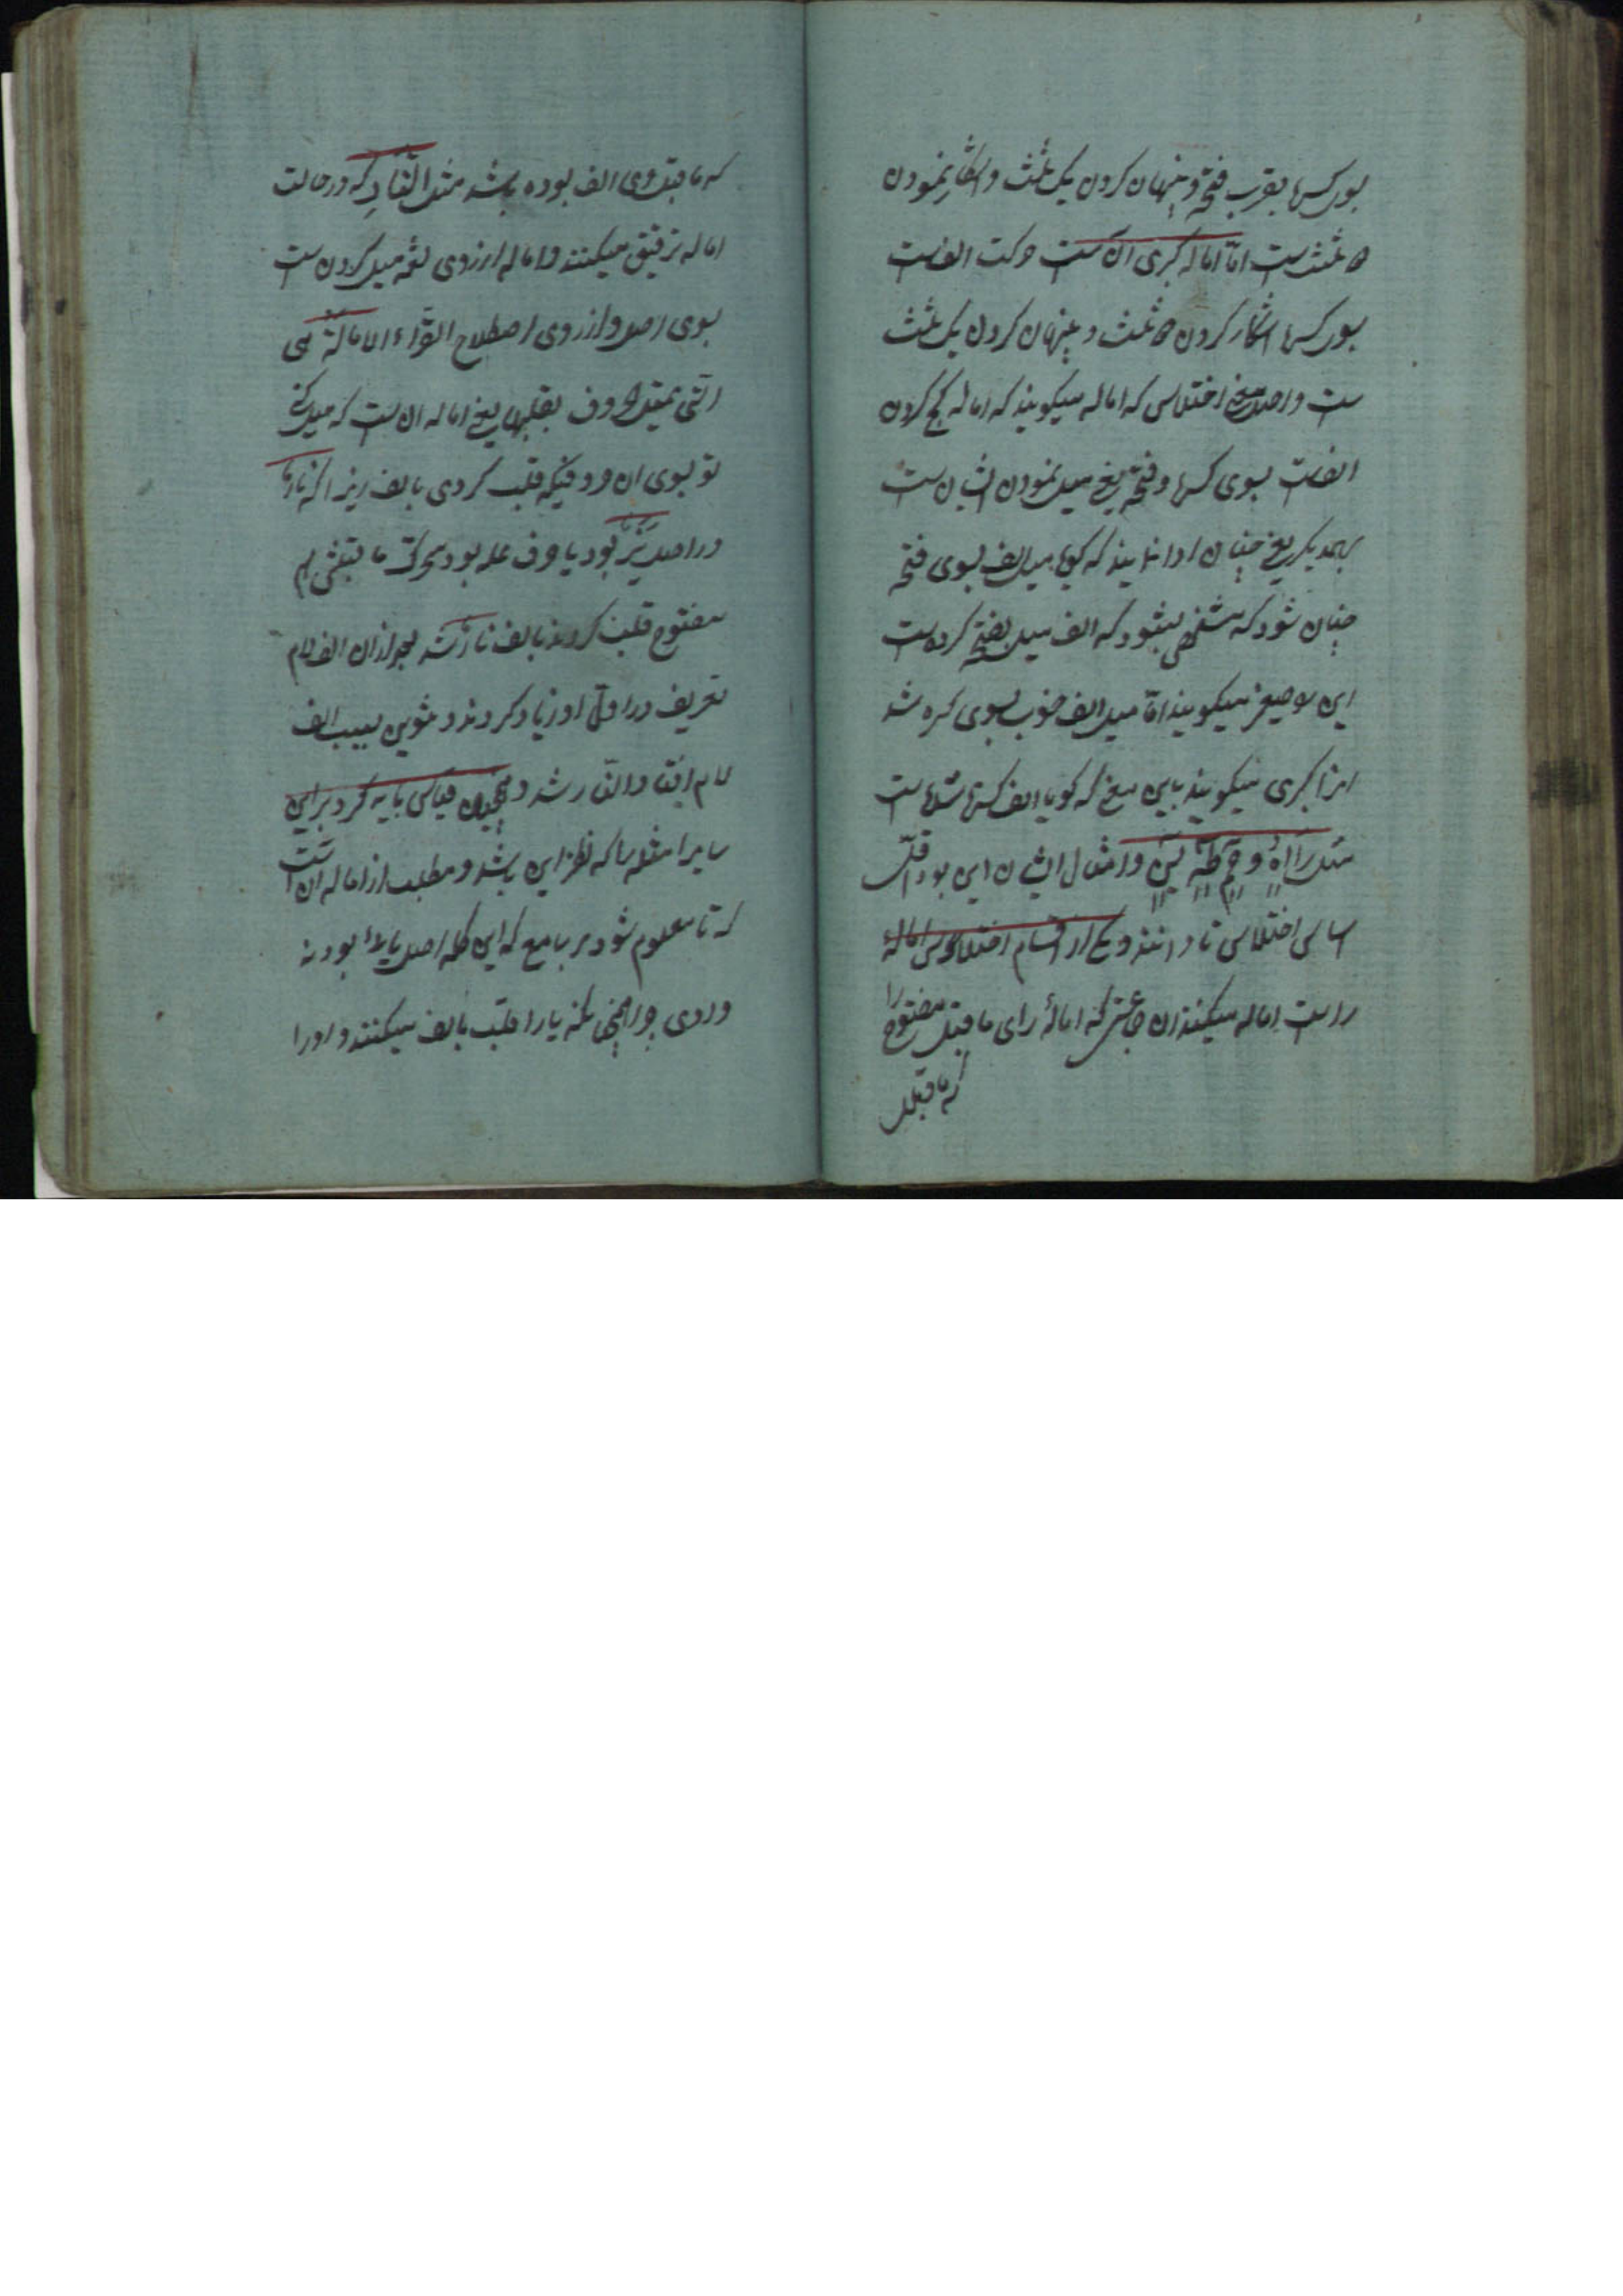 بسوی کسره بقرب فتحه و پنهان کردن یک ثلث و اشکار نمودن
دو ثلث است اما اماله کبری آن است حرکت الف است
بسوی کسره اشکار کردن دو ثلث و پنهان کردن یک ثلث
است و اصل معنی اختلاس که اماله میکویند که اماله کج کردن
الف است بسوی کسره و فتحه یعنی میل نمودن ایشان است
بهمدیکر یعنی چنان ادا نمایند که کویا میل الف بسوی فتحه
چنان شود که مشخص بشود که الف میل بفتحه کرده است
این را صغری میکویند اما میل الف خوب بسوی کسره شد
انرا کبری میکویند باین معنی که کویا الف کسره شده است
مثل رآه و حم طه یس و امثال ایشان این بود اقل
اسامی اختلاس تا دانند و یکی از اقسام اختلاس اماله
را است اماله میکنند ان جاعتی که اماله رای ماقبل مفتوح را
که ماقبل
که ماقبل وی الف بوده باشد مثل النَّارِ که در حالت
اماله ترقیق میکنند و اماله از روی لغه میل کردن است
بسوی اصل و از روی اصطلاح القرّاء الامالة هی
التی تمیل الحروف بقلبها یعنی اماله ان است که میل کنی
تو بسوی ان حروفیکه قلب کردی بالف زیرا که نار
در اصل نَیَرَ بود یا حرف عله بود متحرک ماقبلش هم
مفتوح قلب کردند بالف نار شد بعد از ان الف لام
تعریف در اوّل او زیاد کردند و تنوین بسبب الف
لام افتاد النّار شد و همچنین قیاس باید کرد بر این
سایر امثله را که نظر این باشد و مطلب از اماله ان است
که تا معلوم شود بر سامع که این کلمه اصل یائ بود نه
واوی چرا همچنانکه یا را قلب بالف میکنند و او را